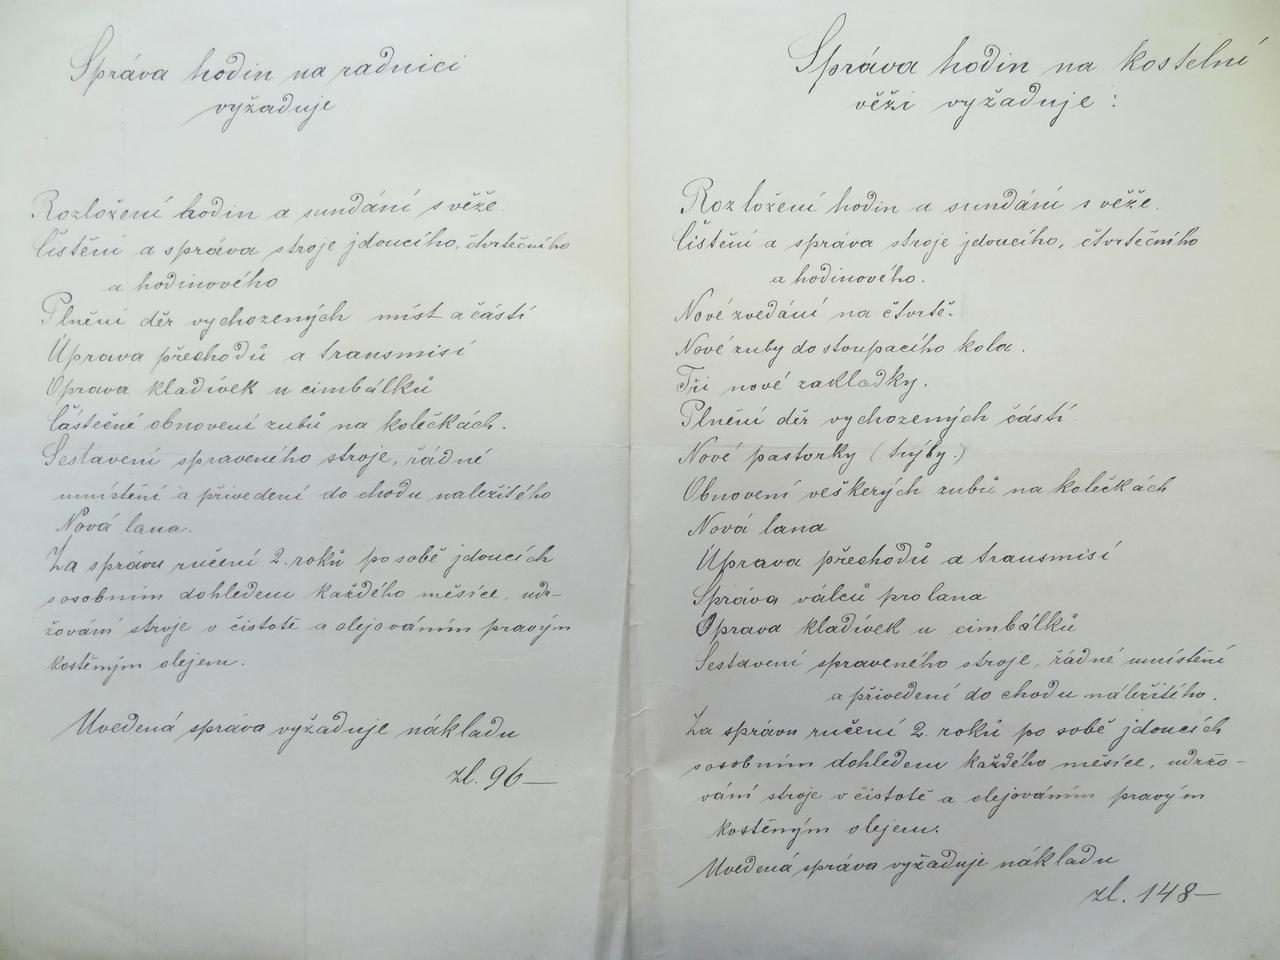 Správa hodin na radnici
vyžaduje
Rozložení hodin a sundání s věže.
Čistění a správa stroje jdoucího, čtvrtečního
a hodinového
Plnění děr vychozených míst a částí
Úprava přechodů a transmisí
Oprava kladívek u cimbálků
Částečné obnovení zubů na kolečkách.
Sestavení spraveného stroje, řádné
umístění a přivedení do chodu náležitého
Nová lana.
Za správu ručení 2. roků po sobě jdoucích
s osobním dohledem každého měsíce, udr-
žování stroje v čistotě a olejováním pravým
kostěným olejem.
Uvedená správa vyžaduje nákladu
zl. 96—
Správa hodin na kostelní
věži vyžaduje:
Rozložení hodin a sundání s věže.
Čistění a správa stroje jdoucího, čtvrtečního
a hodinového.
Nové zvedání na čtvrtě.
Nové zuby do stoupacího kola.
Tři nové zakladky.
Plnění děr vychozených částí
Nové pastorky (trýby.)
Obnovení veškerých zubů na kolečkách
Nová lana
Úprava přechodů a transmisí
Správa válců pro lana
Oprava kladívek u cimbálků
Sestavení spraveného stroje, řádné umístění
a přivedení do chodu náležitého.
Za správu ručení 2. roků po sobě jdoucích
s osobním dohledem každého měsíce, udržo-
vání stroje v čistotě a olejováním pravým
kostěným olejem.
Uvedená správa vyžaduje nákladu
zl. 148—